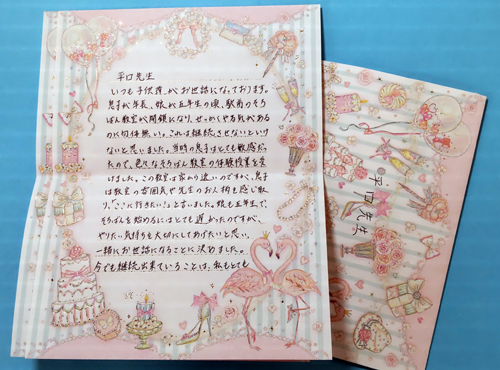 平口先生
いつも子供達がお世話になっております。
息子が年長、娘が五年生の頃、駅前のそろ
ばん教室が閉鎖になり、せっかくやる気があるの
に勿体無い。これは継続させないといけ
ないと思いました。当時の息子はとても敏感だっ
たので、色々なそろばん教室の体験授業を受
けました。この教室は家から遠いのですが、息子
は教室の雰囲気や先生のお人柄も感じ取
り、「ここに行きたい!」と言いました。娘も五年生で、
そろばんを始めるにはとても遅かったのですが、
やりたい気持ちを大切にしてあげたいと思い、
一緒にお世話になることに決めました。
今でも継続出来ていることは、私もとても
平口先生